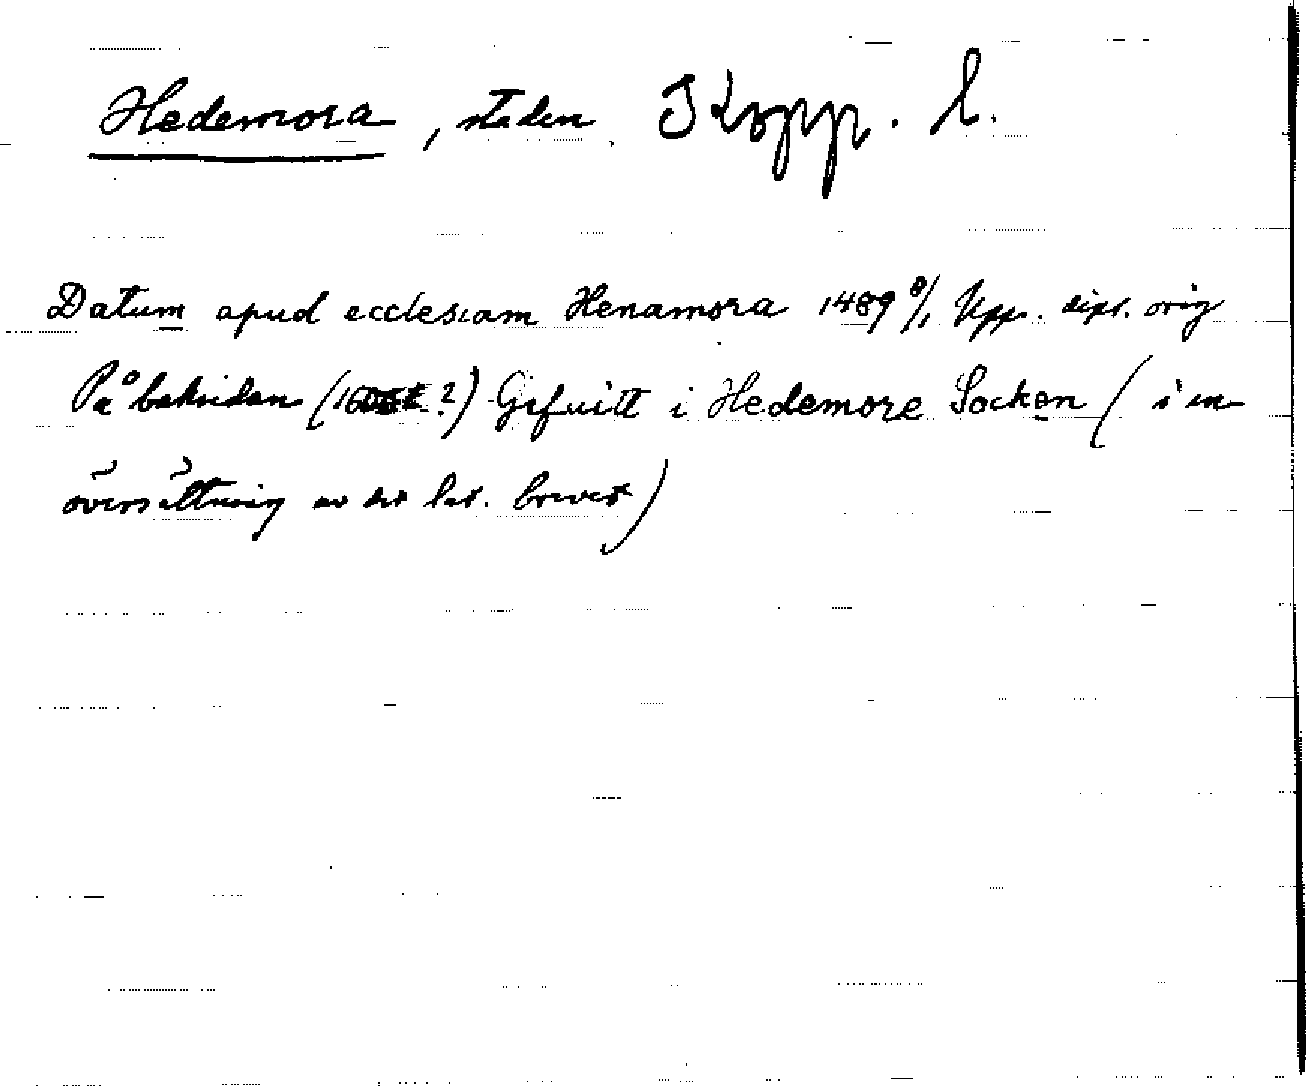 Hedemora, staden Kopp. l.
Datum apud ecclesiam Henamora 1489 8/1 Upp. dipl. orig
På baksidan (16 ?) Gefuitt i Hedemore Socken (i en
översättning av det lat. brevet)